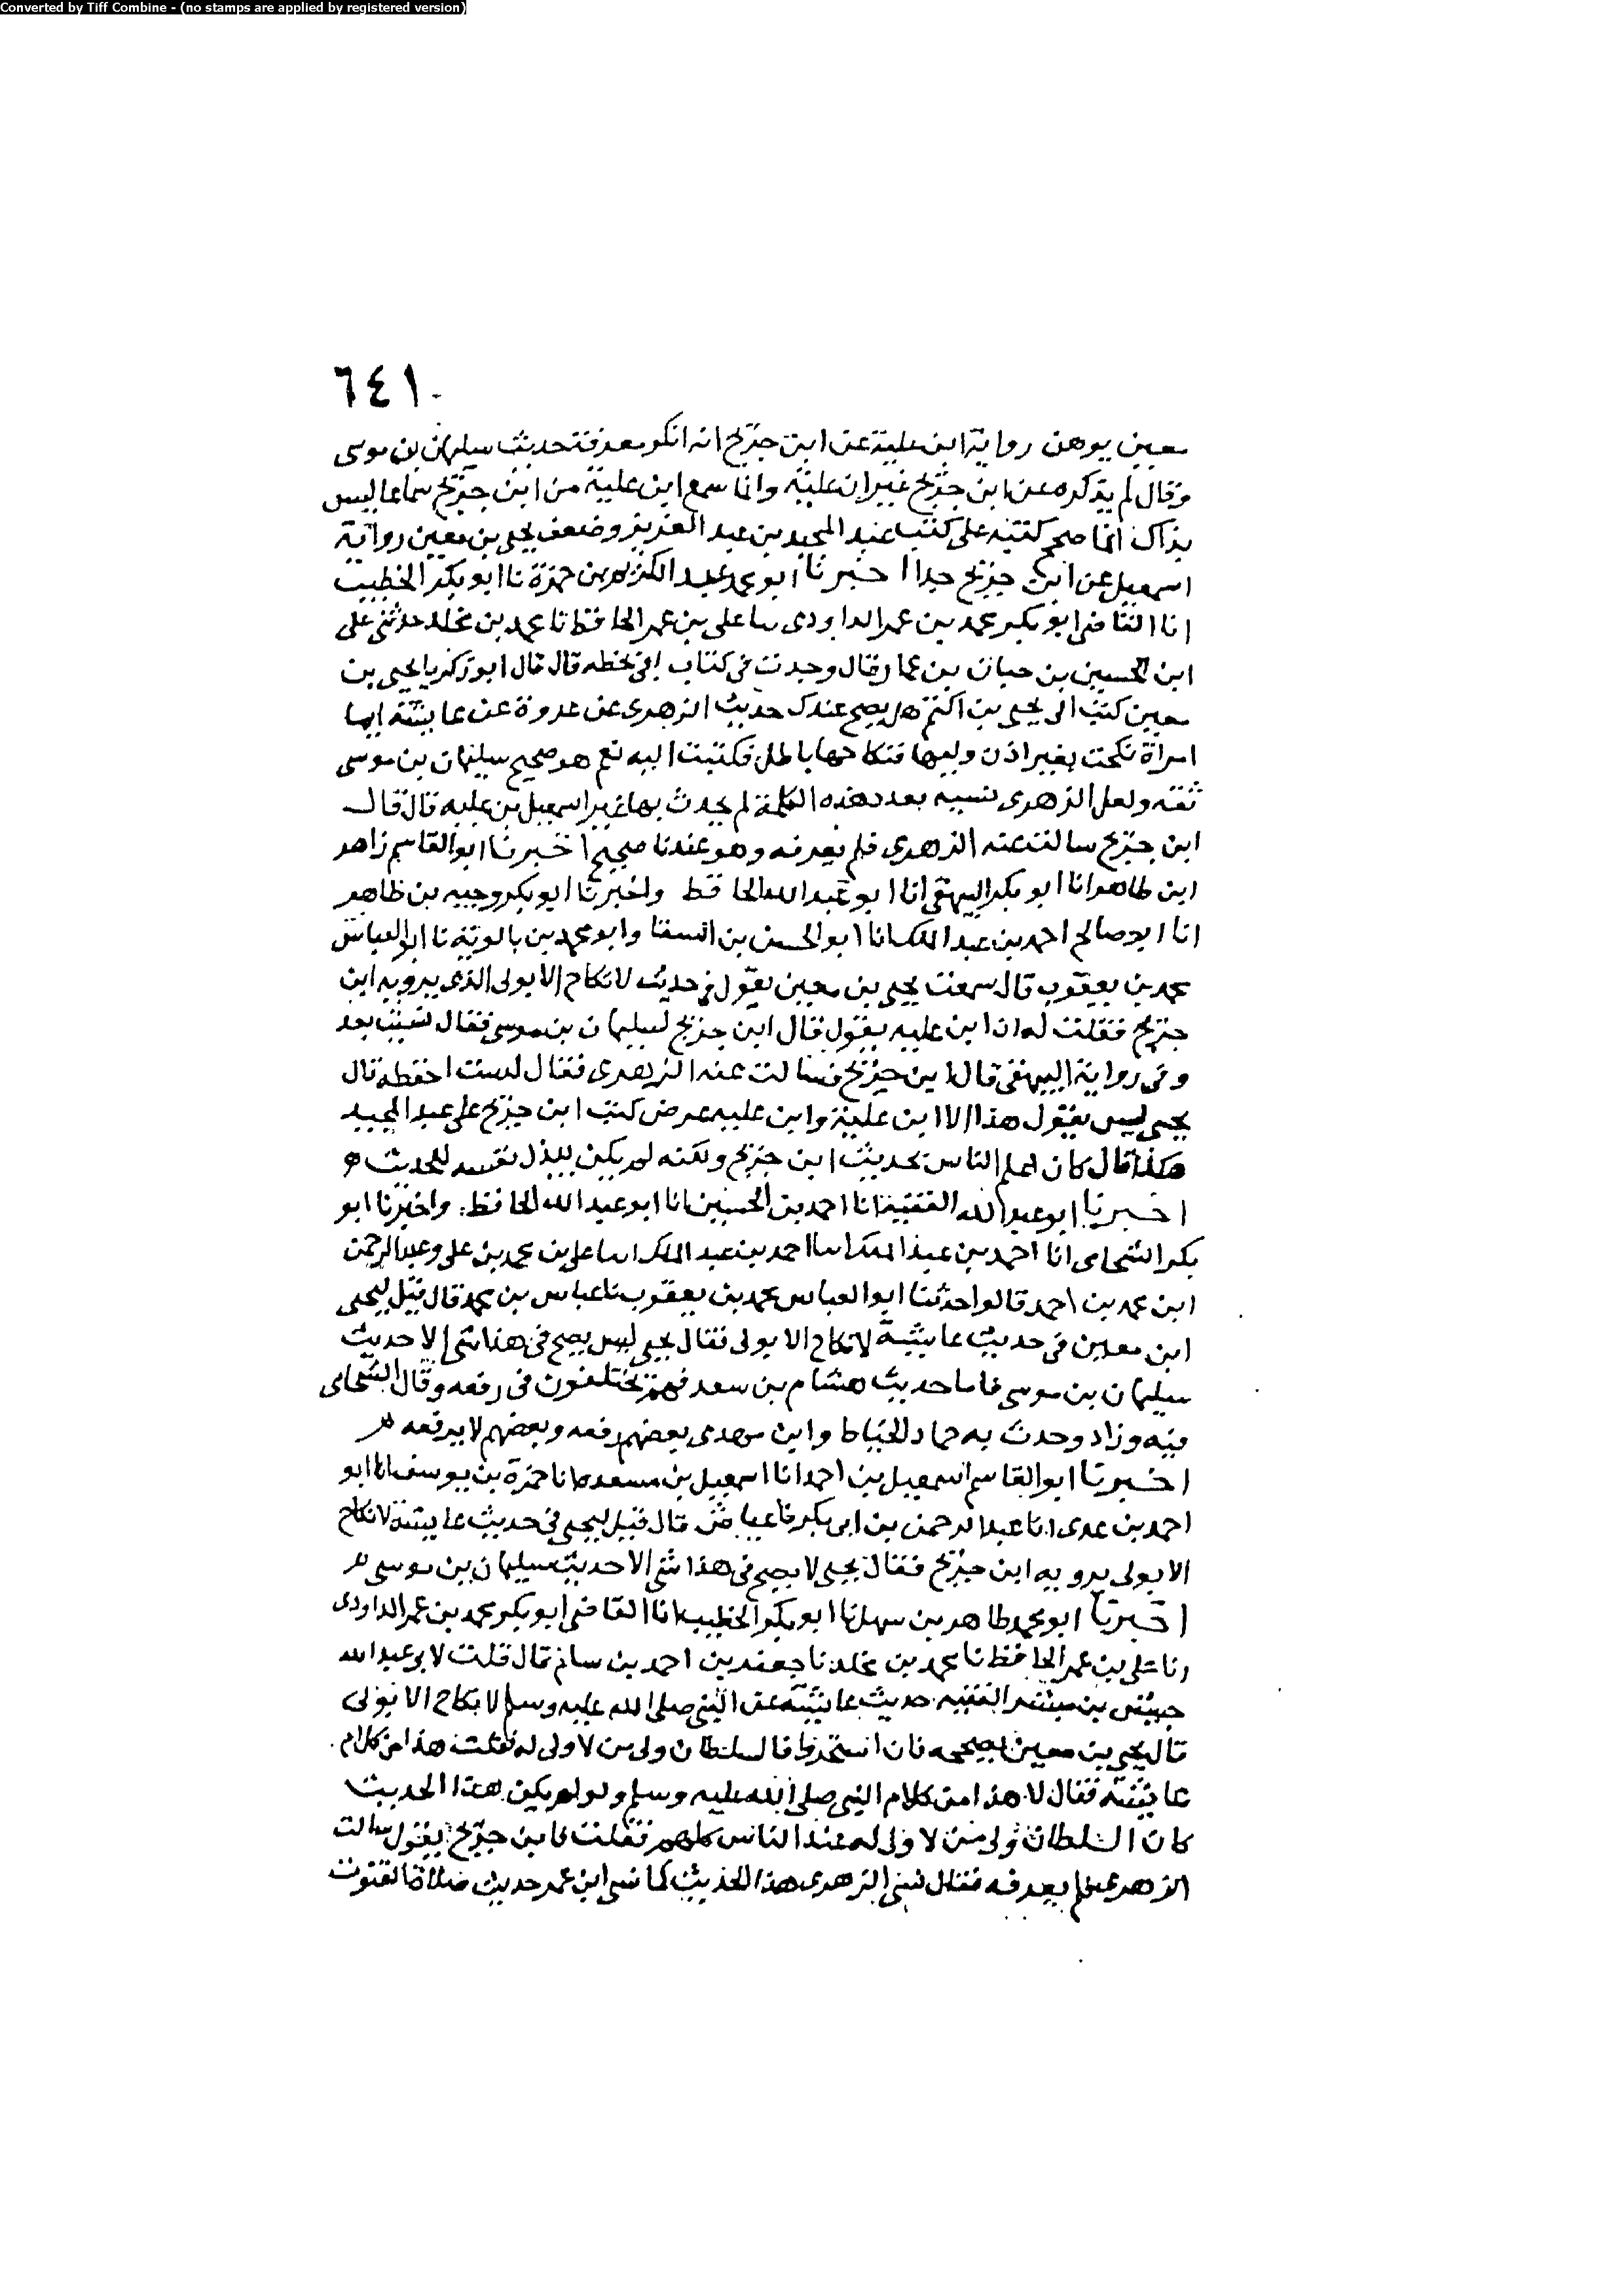 Converted by Tiff Combine - (no stamps are applied by registered version)
٦٤١
معين يوهن رواية ابن علية عن ابن جريج انه انكر معرفة حديث سليمان بن موسى
وقال لم يذكره عن ابن جريج غير ابن علية وانما سمع ابن علية من ابن جريج سماعا ليس
بذاك انما صحح كتبه على كتب عبد المجيد بن عبد العزيز وضعف يحيى بن معين رواية
اسمعيل عن ابن جريج جدا اخبرنا ابو محمد عبد الكريم بن حمزة نا ابو بكر الخطيب
انا القاضي ابو بكر محمد بن عمر الداودى نا على بن عمر الحافظ نا محمد بن مخلد حدثنى على
ابن الحسين بن حبان بن عمار قال وجدت فى كتاب ابى بخطه قال قال ابو زكريا يحيى بن
معين كتب الى يحيى بن اكثم هل يصح عندك حديث الزهرى عن عروة عن عايشة ايما
امراة نكحت بغير اذن وليها فنكاحها باطل فكتبت اليه نعم هو صحيح سليمان بن موسى
ثقة ولعل الزهرى نسيه بعد وهذه الكلمة لم يحدث بها غير اسمعيل بن عليه قال قال
ابن جريج سالت عنه الزهرى فلم يعرفه وهو عندنا صحيح اخبرنا ابو القاسم زاهر
ابن طاهر انا ابو بكر البيهقى انا ابو عبد الله الحافظ واخبرنا ابو بكر وجيه بن طاهر
انا ابو صالح احمد بن عبد الملك انا ابو الحسن بن السقا وابو محمد بن بالويه نا ابو العباس
محمد بن يعقوب قال سمعت يحيى بن معين يقول فى حديث لا نكاح الا بولى الذى يرويه ابن
جريج فقلت له ان ابن عليه يقول قال ابن جريج لسليمان بن موسى فقال نسيت بعد
وفى رواية البيهقى قال ابن جريج فسالت عنه الزهرى فقال لست احفظه قال
يحيى ليس يقول هذا الا ابن علية وابن عليه عرض كتب ابن جريج على عبد المجيد
هكذا قال كان اعلم الناس بحديث ابن جريج ولكنه لم يكن يبذل نفسه للحديث
اخبرنا ابو عبد الله الفقيه انا احمد بن الحسين انا ابو عبد الله الحافظ واخبرنا ابو
بكر الشحامى انا احمد بن عبد الملك انا على بن محمد بن على وعبد الرحمن
ابن محمد بن احمد قالوا حدثنا ابو العباس محمد بن يعقوب نا عباس بن محمد قال قيل ليحيى
ابن معين فى حديث عايشة لا نكاح الا بولى فقال يحيى ليس يصح فى هذا شى الا حديث
سليمان بن موسى فاما حديث هشام بن سعد فهم يختلفون فى رفعه وقال الشحامى
فيه وزاد وحدث به حماد الخياط وابن مهدى بعضهم رفعه وبعضهم لا يرفعه
اخبرنا ابو القاسم اسمعيل بن احمد انا اسمعيل بن مسعدة انا حمزة بن يوسف انا ابو
احمد بن عدى انا عبد الرحمن بن ابى بكر نا عباس قال قيل ليحيى فى حديث عايشة لا نكاح
الا بولى يرويه ابن جريج فقال يحيى لا يصح فى هذا شى الا حديث سليمان بن موسى
اخبرنا ابو محمد طاهر بن سهل نا ابو بكر الخطيب انا القاضى ابو بكر محمد بن عمر الداودى
انا على بن عمر الحافظ نا محمد بن مخلد نا جعفر بن احمد بن سام قال قلت لابى عبد الله
حبيش بن مبشر الفقيه حديث عايشة عن النبى صلى الله عليه وسلم لا نكاح الا بولى
قال يحيى بن معين يصححه فان اشتجروا فالسلطان ولى من لا ولى له فقلت هذا من كلام
عايشة فقال لا هذا من كلام النبى صلى الله عليه وسلم ولو لم يكن هذا الحديث
كان السلطان ولى من لا ولى له عند الناس كلهم فقلت فابن جريج يقول سالت
الزهرى فلم يعرفه فقال نسى الزهرى هذا الحديث كما نسى ابن عمر حديث صلاة القنوت